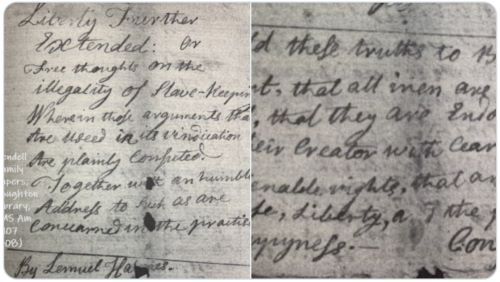 Liberty Further
Extended: Or
Free thoughts on the
illegality of Slave-Keepin
Wherein those arguments tha
Are useed in its vindication
Are plainly confuted.
Together an humble
Address to such as are
Concearned in the practis
By Lemuel Haynes.
endell
amily
apers,
oughton
brary,
MS Am
907
608)
d these truths to B
t, that all men are
, that they are Endo
eir Creator with Cear
enable rights, that ar
fe, Liberty, a d the p
ppyness.— Con